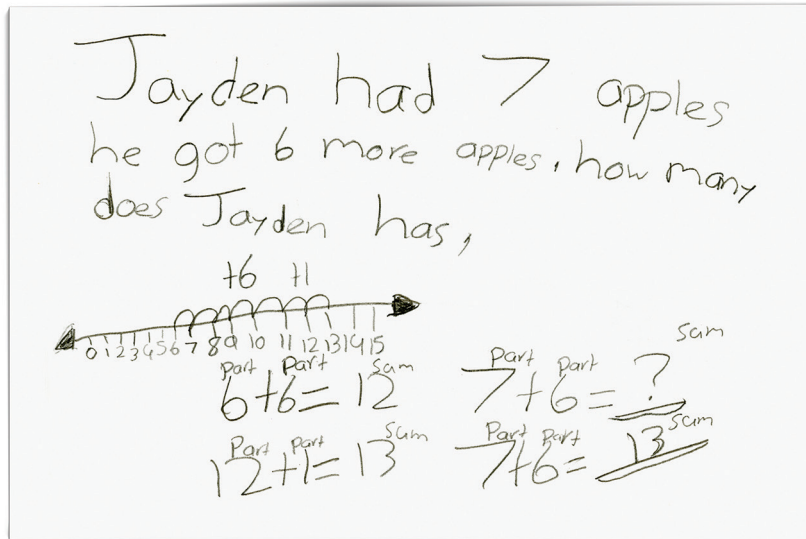 Jayden had 7 apples
he got 6 more apples. how many
does Jayden has,
+6 +1
0 1 2 3 4 5 6 7 8 9 10 11 12 13 14 15
part part sum
6+6=12
part part sum
7+6=?
Part part sum
12+1=13
Part Part sum
7+6=13